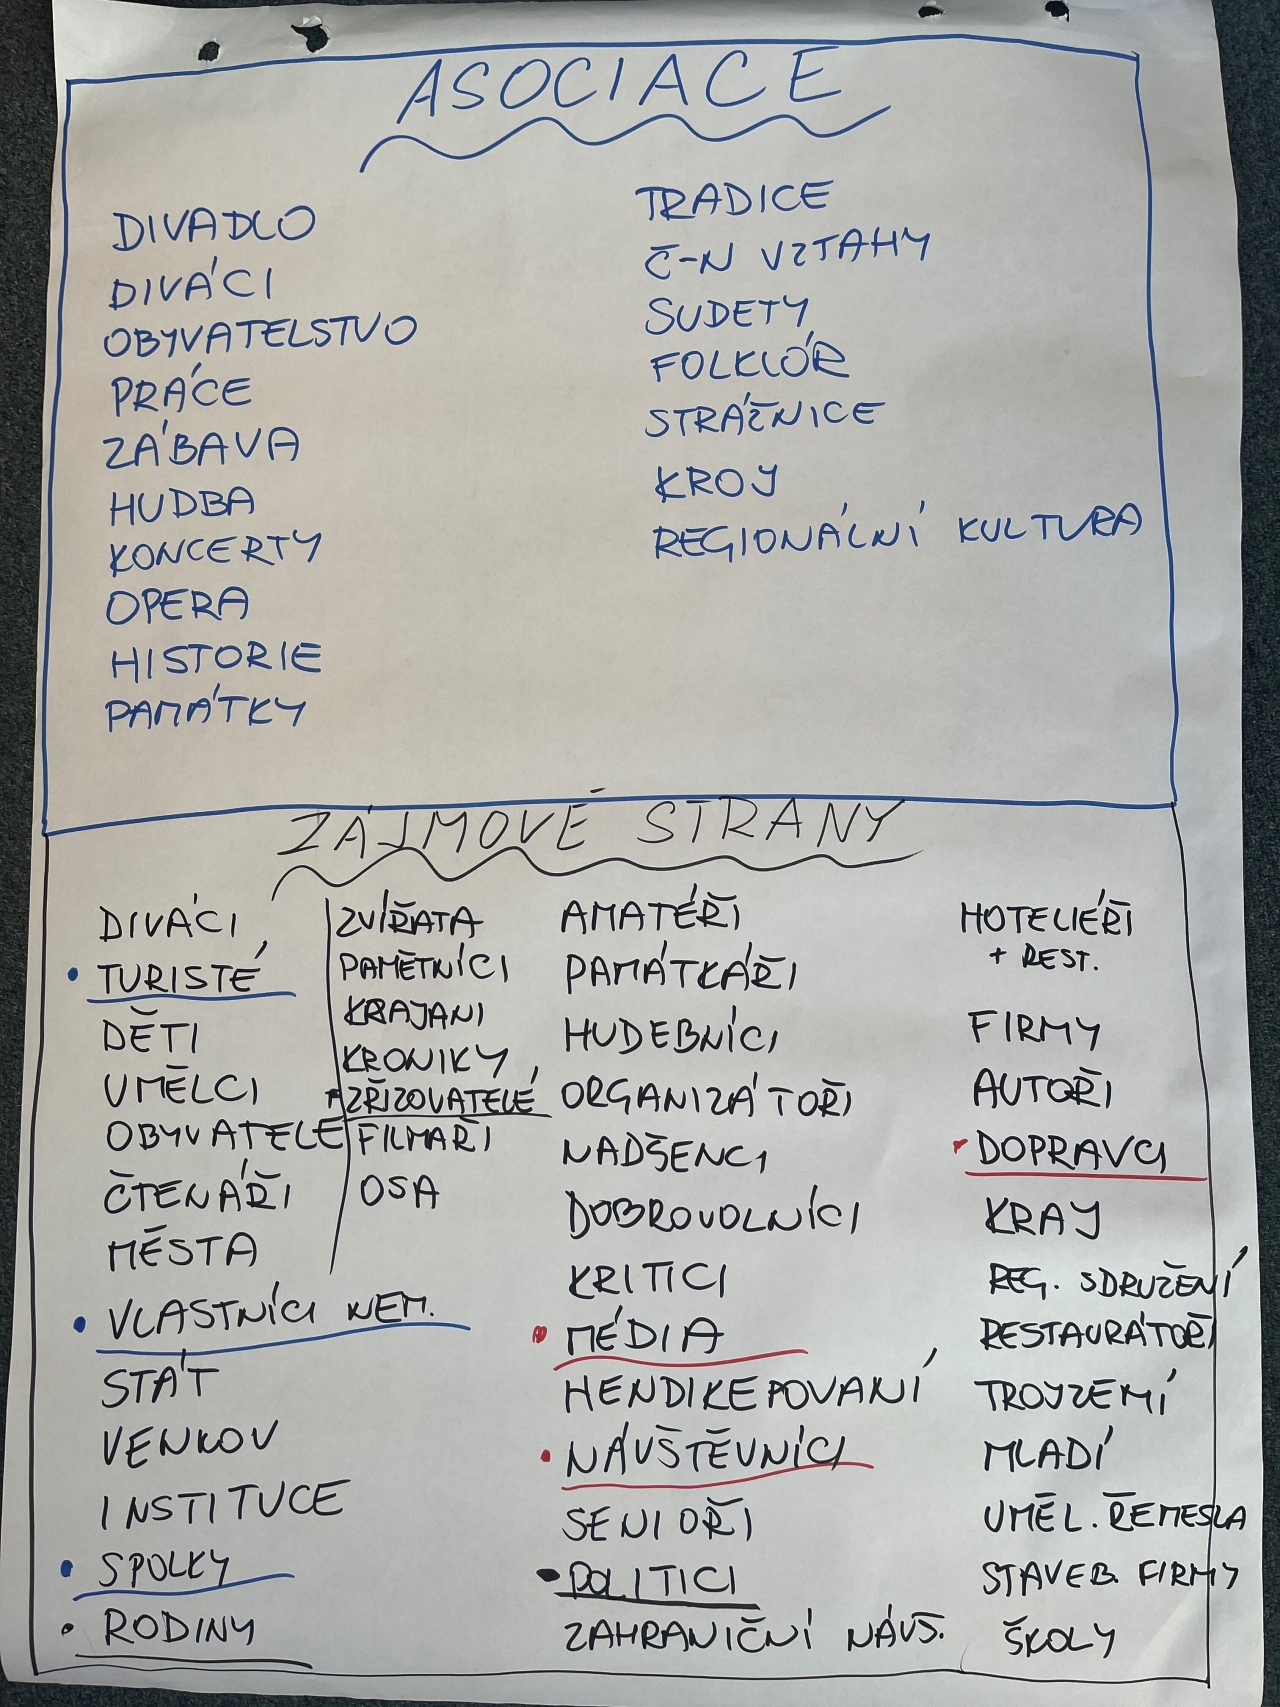 ASOCIACE
DIVADLO
DIVÁCI
OBYVATELSTVO
PRÁCE
ZÁBAVA
HUDBA
KONCERTY
OPERA
HISTORIE
PAMÁTKY
TRADICE
Č-N VZTAHY
SUDETY
FOLKLÓR
STRÁŽNICE
KROJ
REGIONÁLNÍ KULTURA
ZÁJMOVÉ STRANY
DIVÁCI
• TURISTÉ
DĚTI
UMĚLCI
OBYVATELÉ
ČTENÁŘI
MĚSTA
• VLASTNÍCI NEM.
STÁT
VENKOV
INSTITUCE
• SPOLKY
• RODINY
ZVÍŘATA
PAMĚTNÍCI
KRAJANI
KRONIKY
• ZŘIZOVATELÉ
FILMAŘI
OSA
AMATÉŘI
PAMÁTKÁŘI
HUDEBNÍCI
ORGANIZÁTOŘI
NADŠENCI
DOBROVOLNÍCI
KRITICI
• MÉDIA
HENDIKEPOVANÍ
• NÁVŠTĚVNÍCI
SENIOŘI
• POLITICI
ZAHRANIČNÍ NÁVŠ.
HOTELIÉŘI
+ REST.
FIRMY
AUTOŘI
• DOPRAVCI
KRAJ
REG. SDRUŽENÍ
RESTAURÁTOŘI
TROJZEMÍ
MLADÍ
UMĚL. ŘEMESLA
STAVEB. FIRMY
ŠKOLY